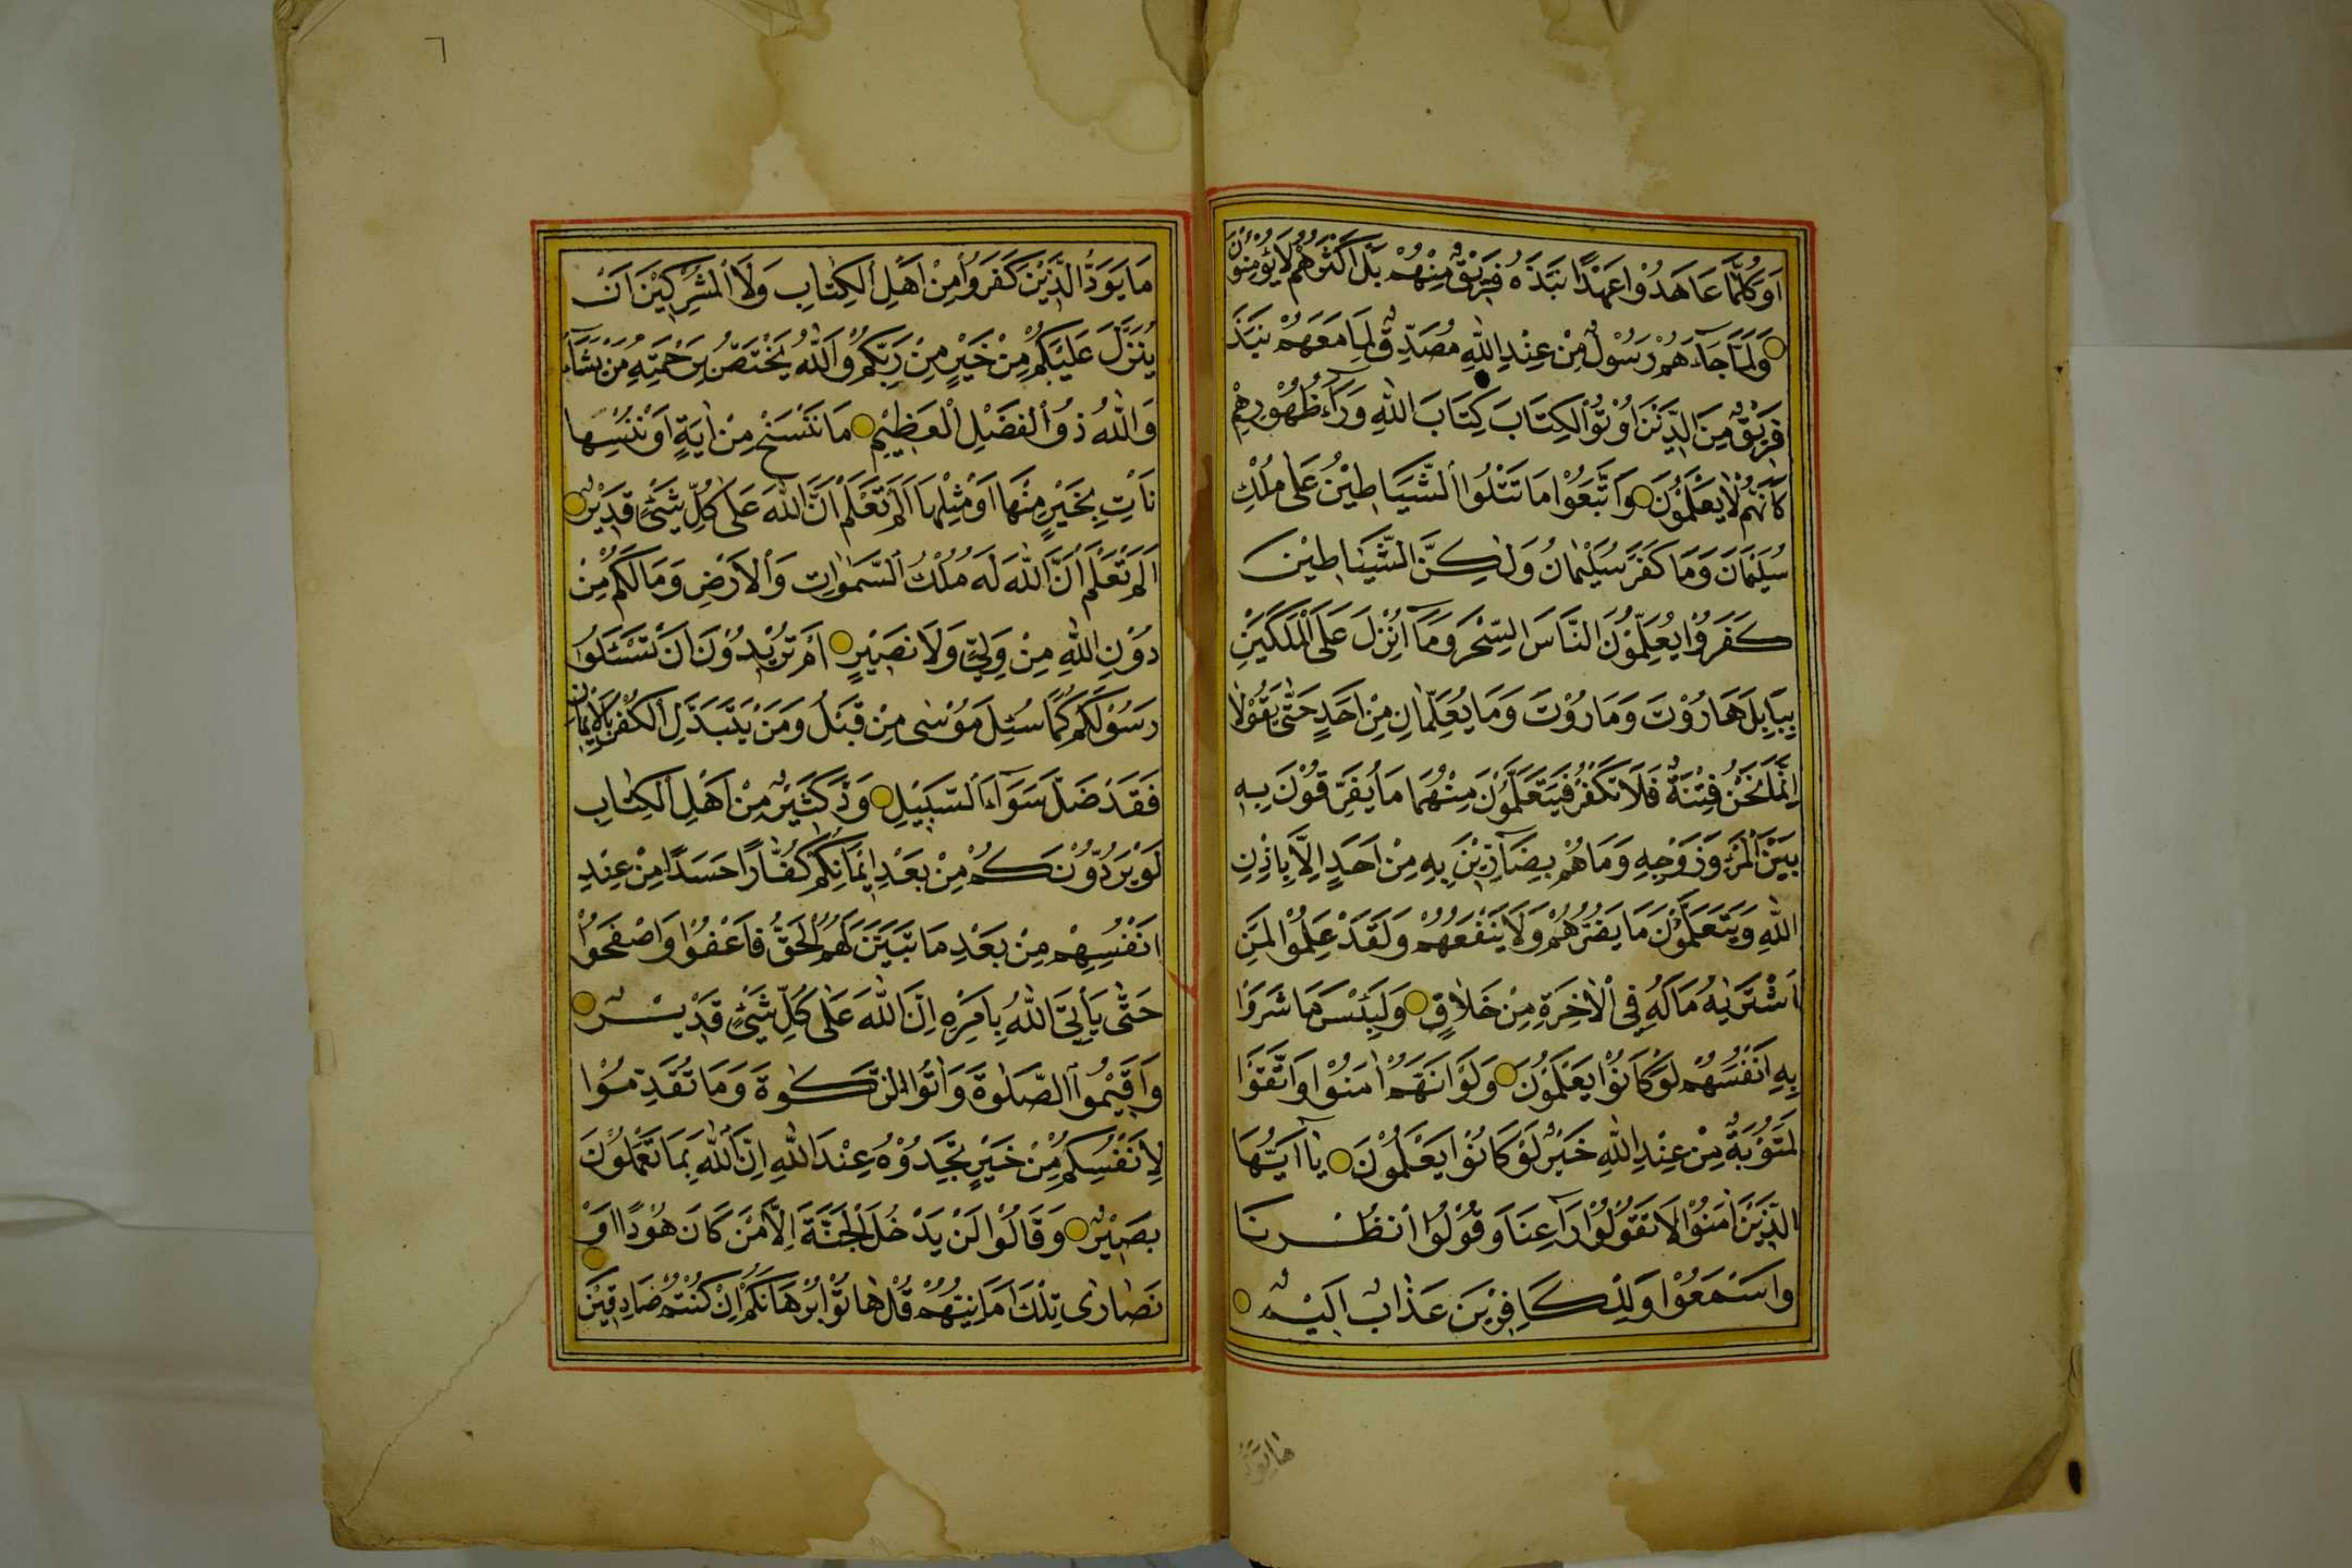 اَوَكُلَّمَا عَاهَدُوْا عَهْدًا نَبَذَهُ فَرِيْقٌ مِنْهُمْ بَلْ اَكْثَرُهُمْ لَا يُؤْمِنُوْنَ
وَلَمَّا جَاۤءَهُمْ رَسُوْلٌ مِنْ عِنْدِ اللّٰهِ مُصَدِّقٌ لِمَا مَعَهُمْ نَبَذَ
فَرِيْقٌ مِنَ الَّذِيْنَ اُوْتُوا الْكِتَابَ كِتَابَ اللّٰهِ وَرَاۤءَ ظُهُوْرِهِمْ
كَاَنَّهُمْ لَا يَعْلَمُوْنَ وَاتَّبَعُوْا مَا تَتْلُوا الشَّيَاطِيْنُ عَلٰى مُلْكِ
سُلَيْمٰنَ وَمَا كَفَرَ سُلَيْمٰانُ وَلٰكِنَّ الشَّيَاطِيْنَ
كَفَرُوْا يُعَلِّمُوْنَ النَّاسَ السِّحْرَ وَمَاۤ اُنْزِلَ عَلَى الْمَلَكَيْنِ
بِبَابِلَ هَارُوْتَ وَمَارُوْتَ وَمَا يُعَلِّمَانِ مِنْ اَحَدٍ حَتّٰى يَقُوْلَا
اِنَّمَا نَحْنُ فِتْنَةٌ فَلَا تَكْفُرْ فَيَتَعَلَّمُوْنَ مِنْهُمَا مَا يُفَرِّقُوْنَ بِهِ
بَيْنَ الْمَرْءِ وَزَوْجِهِ وَمَا هُمْ بِضَاۤرِّيْنَ بِهِ مِنْ اَحَدٍ اِلَّا بِاِذْنِ
اللّٰهِ وَيَتَعَلَّمُوْنَ مَا يَضُرُّهُمْ وَلَا يَنْفَعُهُمْ وَلَقَدْ عَلِمُوْا لَمَنِ
اشْتَرٰيهُ مَا لَهُ فِى الْاٰخِرَةِ مِنْ خَلَاقٍ وَلَبِئْسَ مَا شَرَوْا
بِهِ اَنْفُسَهُمْ لَوْ كَانُوْا يَعْلَمُوْنَ وَلَوْ اَنَّهُمْ اٰمَنُوْا وَاتَّقَوْا
لَمَثُوْبَةٌ مِنْ عِنْدِ اللّٰهِ خَيْرٌ لَوْ كَانُوْا يَعْلَمُوْنَ يٰاۤ اَيُّهَا
الَّذِيْنَ اٰمَنُوْا لَا تَقُوْلُوْا رَاعِنَا وَقُوْلُوا انْظُرْنَا
وَاسْمَعُوْا وَلِلْكَافِرِيْنَ عَذَابٌ اَلِيْمٌ
مَا يَوَدُّ
مَا يَوَدُّ الَّذِيْنَ كَفَرُوْا مِنْ اَهْلِ الْكِتٰابِ وَلَا الْمُشْرِكِيْنَ اَنْ
يُنَزَّلَ عَلَيْكُمْ مِنْ خَيْرٍ مِنْ رَبِّكُمْ وَاللّٰهُ يَخْتَصُّ بِرَحْمَتِهِ مَنْ يَشَاۤءُ
وَاللّٰهُ ذُو الْفَضْلِ الْعَظِيْمِ مَا نَنْسَخْ مِنْ اٰيَةٍ اَوْ نُنْسِهَا
نَأْتِ بِخَيْرٍ مِنْهَا اَوْ مِثْلِهَا اَلَمْ تَعْلَمْ اَنَّ اللّٰهَ عَلٰى كُلِّ شَيْءٍ قَدِيْرٌ
اَلَمْ تَعْلَمْ اَنَّ اللّٰهَ لَهُ مُلْكُ السَّمٰوَاتِ وَالْاَرْضِ وَمَا لَكُمْ مِنْ
دُوْنِ اللّٰهِ مِنْ وَلِيٍّ وَلَا نَصِيْرٍ اَمْ تُرِيْدُوْنَ اَنْ تَسْئَلُوْا
رَسُوْلَكُمْ كَمَا سُئِلَ مُوْسٰى مِنْ قَبْلُ وَمَنْ يَتَبَدَّلِ الْكُفْرَ بِالْاِيْمَانِ
فَقَدْ ضَلَّ سَوَاۤءَ السَّبِيْلِ وَدَّ كَثِيْرٌ مِنْ اَهْلِ الْكِتٰابِ
لَوْ يَرُدُّوْنَكُمْ مِنْ بَعْدِ اِيْمَانِكُمْ كُفَّارًا حَسَدًا مِنْ عِنْدِ
اَنْفُسِهِمْ مِنْ بَعْدِ مَا تَبَيَّنَ لَهُمُ الْحَقُّ فَاعْفُوْا وَاصْفَحُوْا
حَتّٰى يَأْتِىَ اللّٰهُ بِاَمْرِهِ اِنَّ اللّٰهَ عَلٰى كُلِّ شَيْءٍ قَدِيْرٌ
وَاَقِيْمُوا الصَّلٰوةَ وَاٰتُوا الزَّكٰوةَ وَمَا تُقَدِّمُوْا
لِاَنْفُسِكُمْ مِنْ خَيْرٍ تَجِدُوْهُ عِنْدَ اللّٰهِ اِنَّ اللّٰهَ بِمَا تَعْمَلُوْنَ
بَصِيْرٌ وَقَالُوْا لَنْ يَدْخُلَ الْجَنَّةَ اِلَّا مَنْ كَانَ هُوْدًا اَوْ
نَصَارٰى تِلْكَ اَمَانِيُّهُمْ قُلْ هَاتُوْا بُرْهَانَكُمْ اِنْ كُنْتُمْ صَادِقِيْنَ